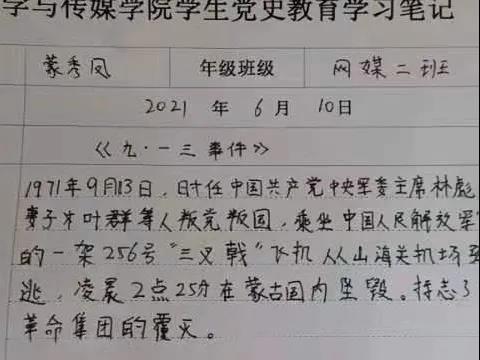 学与传媒学院学生党史教育学习笔记
蒙秀凤 年级班级 网媒二班
2021 年 6月 10日
《九·一三事件》
1971年9月13日,时任中国共产党中央军委主席林彪
妻子叶群等人叛党叛国,乘坐中国人民解放军
的一架256号"三叉戟"飞机从山海关机场
逃,凌晨2点25分在蒙古国内坠毁。标志了
革命集团的覆灭。